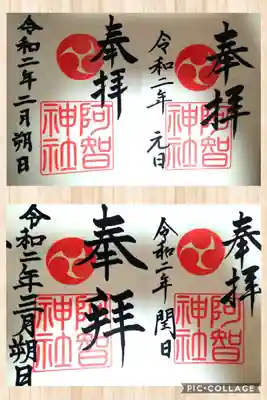 奉拝
阿智神社
令和二年 元日
奉拝
阿智神社
令和二年二月朔日
奉拝
阿智神社
令和二年 閏日
奉拝
阿智神社
令和二年三月朔日
PIC•COLLAGE